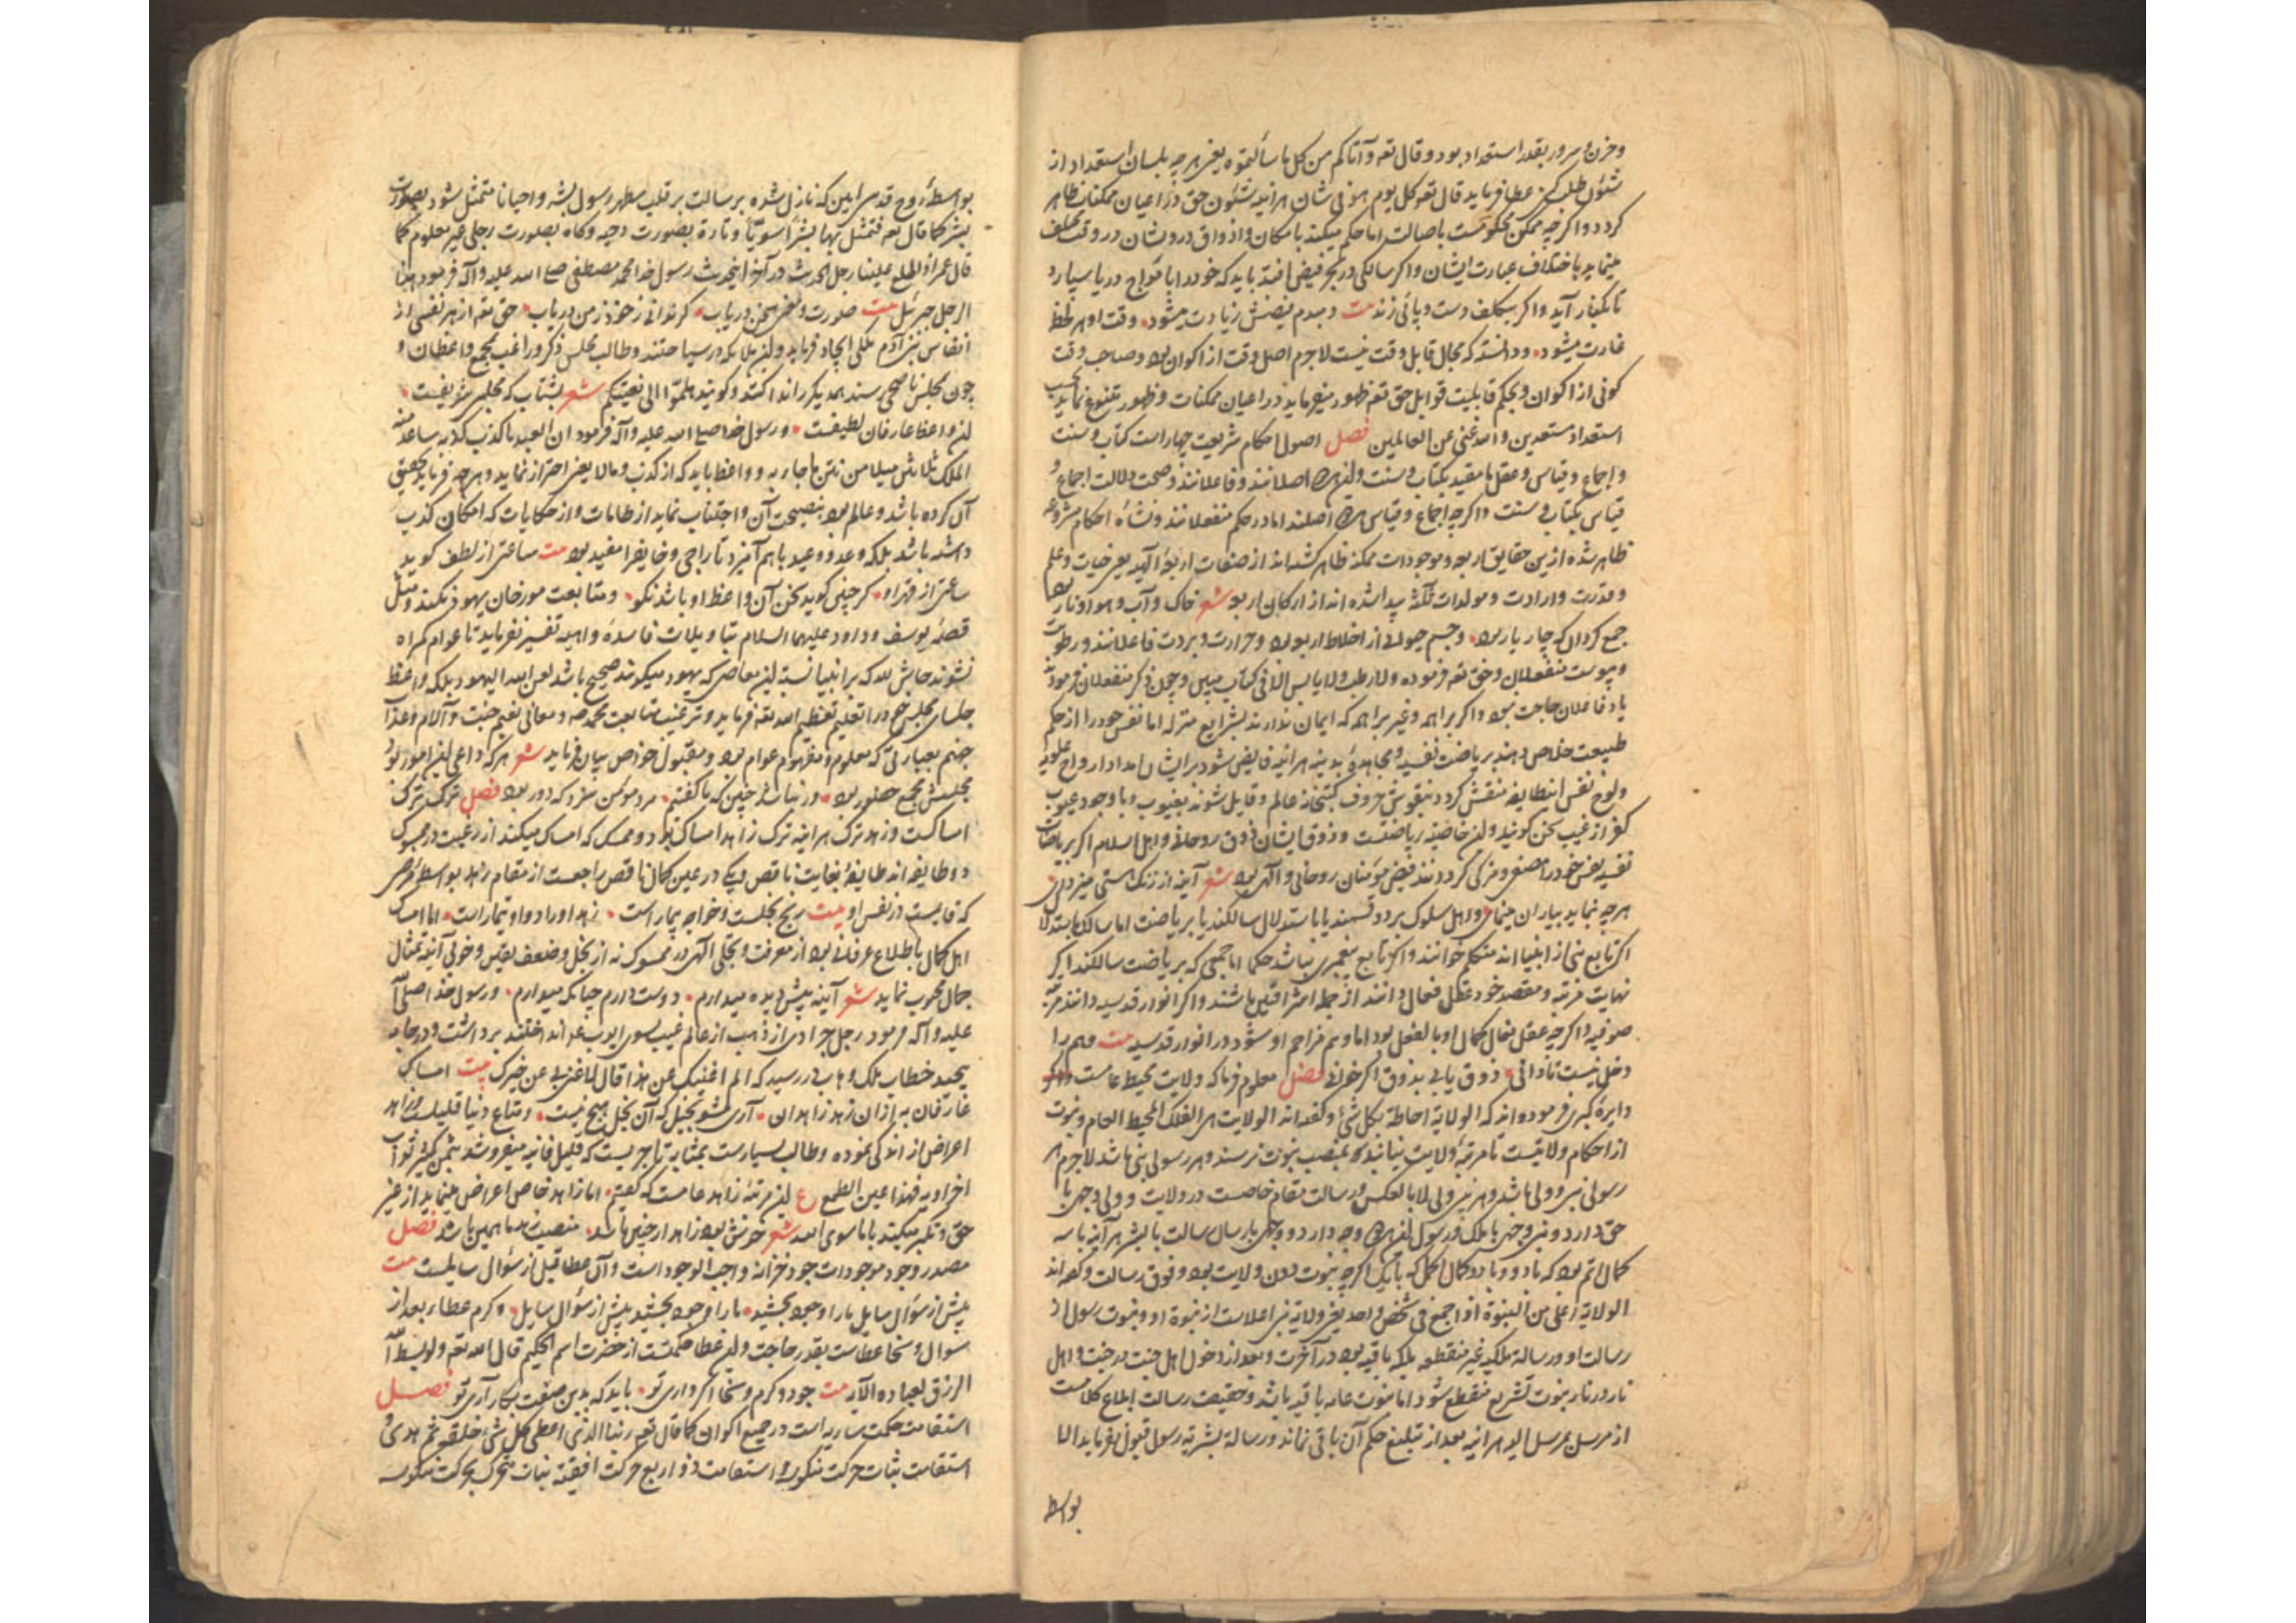 وحزن و سرور بقدر استعداد بود و قال تعه و آتاکم من کل ما سألتموه یعنی هرچه بلسان استعداد از
شئون طلب کنی عطا فرماید قال تعه کل یوم هو فی شان هرآینه شئون حق در اعیان ممکنات ظاهر
گردد و اگرچه ممکن محکومست باصالت اما حکم میکند بامکان و اذواق درویشان در وقت مختلف
مینماید باختلاف عبارت ایشان و اگر سالکی در بحر فیض افتد باید که خود را بامواج دریا سپارد
تا بکنار آید و اگر بتکلف دست و پائی زند بیت دمبدم فیضش زیادت میشود وقت او هر لحظه
غارت میشود و دانسته که محال قابل وقت نیست لاجرم اصل وقت از اکوان بود و صاحب وقت
کونی از اکوان و بحکم قابلیت قوابل حق تعه ظهور میفرماید در اعیان ممکنات و ظهور متنوع نماید بحسب
استعداد مستعدین والله غنی عن العالمین فصل اصول احکام شریعت چهار است کتاب و سنت
و اجماع و قیاس و عقل ما مقید بکتاب و سنت و این هر دو اصلانند و فاعلانند و صحت دلالت اجماع و
قیاس بکتاب و سنت و اگرچه اجماع و قیاس هر دو اصلند اما در حکم منفعلانند و نشأه احکام مشروعه
ظاهر شده ازین حقایق اربعه و موجودات ممکنه ظاهر گشته اند از صفات اربعه الهیه یعنی حیات و علم
و قدرت و ارادت و مولدات ثلثه پیدا شده اند از ارکان اربعه شعر خاک و آب و هوا و نار بهم
جمع کرد آن که چار یار بود و جسم حیوانی از اخلاط اربعه بود و حرارت و برودت فاعلانند و رطوبت
و یبوست منفعلان و حق تعه فرموده ولا رطب ولا یابس الا فی کتاب مبین و چون ذکر منفعلان فرموده
یاد فاعلان حاجت نبود و اگر براهمه و غیر براهمه که ایمان ندارند بشرایع منزله اما نفس خود را از حکم
طبیعت خلاص دهند بریاضت نفسیه و مجاهده بدنیه هرآینه فایض شود بر ایشان امداد ارواح علویه
و لوح نفس این طایفه منقش گردد بنقوش حروف کتبخانه عالم و قایل شوند بغیوب و با وجود عیوب
کفر از غیب سخن گویند و این خاصیه ریاضتست و ذوق ایشان ذوق روحانی و اهل اسلام اگر بریاضات
نفسیه نفس خود را مصفی و مزکی گردانند فیض مؤمنان روحانی و الهی بود شعر آینه از زنگ هستی میزدای
هرچه نماید بیاران مینما و اهل سلوک بر دو قسمند یا باستدلال سالکند یا بریاضت اما سالک باستدلال
اگر تابع نبی از انبیا اند متکلم خوانند و اگر تابع پیغمبری نباشد حکما اما جمعی که بریاضت سالکند اگر
نهایت مرتبه و مقصد خود عقل فعال دانند از جمله اشراقیین باشند و اگر انوار قدسیه دانند مرتبه
صوفیه و اگرچه عقل فعال کمال او بالفعل بود اما وهم مزاحم او شود در انوار قدسیه بیت وهم را
دخل نیست تا دانی ذوق یابی بذوق اگر خوانی فصل معلوم فرما که ولایت محیط عامست
دایره کبری فرموده اند که الولایة احاطة بکل شئ و گفته اند الولایت هی الفلک المحیط العام و نبوت
از احکام ولایتست تا مرتبه ولایت نیابند بمنصب نبوت نرسند و هر رسولی نبی باشد لاجرم هر
رسولی نبی و ولی باشد و هر نبی ولی لا بالعکس و رسالت مقام خاصست در ولایت و ولی وجهی با
حق دارد و نبی وجهی با ملک و رسول این هر دو وجه دارد و وجهی بارسال رسالت با بشر هرآینه با سه
کمال اتم بود که با دو و با دو کمال اکمل که با یکی اگرچه نبوت دون ولایت بود و فوق رسالت و گفته اند
الولایة اعلی من النبوة اذا جمع فی شخص واحد یعنی ولایة نبی اعلاست از نبوة او و نبوت رسول از
رسالت او و رسالة ملکیه غیر منقطعه بلکه باقیه بود در آخرت و بعد از دخول اهل جنت در جنت و اهل
نار در نار نبوت تشریع منقطع شود اما نبوت عامه باقیه باشد و حقیقت رسالت ابلاغ کلامست
از مرسل بمرسل الیه هرآینه بعد از تبلیغ حکم آن باقی نماند و رسالة بشریه رسول قبول نفرماید الا
بواسطه
بواسطه روح قدسی امین که نازل شده برسالت بر قلب مطهر رسول بشر و احیانا متمثل شود بصورت
بشر کما قال تعه فتمثل لها بشرا سویا و تارة بصورت دحیه و گاه بصورت رجلی غیر معلوم کما
قال عمر اذ اطلع علینا رجل الحدیث و در آخر این حدیث رسول خدا محمد مصطفی صلی الله علیه و آله فرمود هذا
الرجل جبرئیل بیت صورت و معنی سخن دریاب گر ندانی ز خود ز من دریاب حق تعه از هر نفسی از
انفاس بنی آدم ملکی ایجاد فرماید و این ملایکه در سیاحتند و طالب مجلس ذکر و راغب مجمع واعظان و
چون بمجلس ناصحی رسند همدیگر را ندا کنند و گویند هلموا الی بغیتکم شعر بشتاب که مجلس شریفست
این واعظ عارفان لطیفست و رسول خدا صلی الله علیه و آله فرمود ان العبد ما کذب کذبه تباعد منه
الملک ثلاثین میلا من نتن ما جاء به و واعظ باید که از کذب و مالایعنی احتراز نماید و هرچه فرماید تحقیق
آن کرده باشد و عالم بود بنصیحت آن و اجتناب نماید از طامات و از حکایات که امکان کذب
داشته باشد بلکه وعد و وعید باهم آمیزد تا راجی و خایف را مفید بود بیت ساعتی از لطف گوید
ساعتی از قهر او گر چنین گوید سخن آن واعظ او باشد نکو و متابعت مورخان یهود نکند و مثل
قصه یوسف و داود علیهما السلام بتاویلات فاسده واهیه تفسیر نفرماید تا عوام گمراه
نشوند حاش لله که بر انبیا نسبت این معاصی که یهود میگویند صحیح باشد لعن الله الیهود بلکه واعظ
جلسای مجلس خود را تعلیم تعظیم الله تعه فرماید و ترغیب متابعت محمد صه و معانی نعیم جنت و آلام و عذاب
جهنم بعبارتی که معلوم و مفهوم عوام بود و مقبول خواص بیان فرماید شعر هر که داعی این امور بود
مجلسش مجمع حضور بود ور نباشد چنین که ما گفتیم مرد مؤمن سزد که دور بود فصل ترک ترک
امساکست و زهد ترک هرآینه ترک زاهد امساک بود و ممسک که امساک میکند از رغبت در ممسوک
دو طایفه اند طایفه بغایت ناقص و یکی در عین کمال ناقص مراجعت از مقام زهد بواسطه مرض
که قایمست در نفس او بیت رنج بخلست و خواجه بیمار است زهد او را دوای تیمار است اما امساک
اهل کمال باطلاع عرفانی بود از معرفت و تجلی الهی در ممسوک نه از بخل و ضعف یقین و خوئی آینه تمثال
جمال محبوب نماید شعر آینه پیش دیده میدارم دوست دارم چنانکه میدارم و رسول خدا صلی الله
علیه و آله فرمود رجل جرادی از ذهب از عالم غیب بسوی ایوب عه انداختند برداشت و در جامه
پیچید خطاب ملک وهاب در رسید که الم اغنیک عن هذا قال لا غنی لی عن خیرک بیت امساک
عارفان به از آن زهد زاهدان آری مشو بخیل که آن بخل هیچ نیست و متاع دنیا قلیلست و زاهد
اعراض از اندکی نموده و طالب بسیارست بمثابه تاجریست که قلیل فانیه میفروشد بثمن کثیر ثواب
اخراویه فهذا عین الطمع ع این مرتبه زاهد عامست که گفتم اما زاهد خاص اعراض مینماید از غیر
حق و تکبر میکند با ما سوی الله شعر خوش بود زاهد ار چنین باشد منصب زهد ما همین باشد فصل
مصدر وجود موجودات جود خزانه واجب الوجود است و آن عطا قبل از سؤال سایلست بیت
پیش از سؤال سایل ما را وجود بخشید ما را وجود بخشید پیش از سؤال سایل و کرم عطاء بعد از
سوال و سخا عطاست بقدر حاجت و این عطا حکمتست از حضرت اسم الحکیم قال الله تعه ولو بسط الله
الرزق لعباده الآیه بیت جود و کرم و سخا اگر داری تو باید که بدین صفت بکار آری تو فصل
استقامت حکمت ساریه است در جمیع اکوان کما قال تعه ربنا الذی اعطی کل شئ خلقه ثم هدی و
استقامت نبات حرکت منکوسه و استقامت ذو اربع حرکت افقیه نبات متحرک بحرکت منکوسه